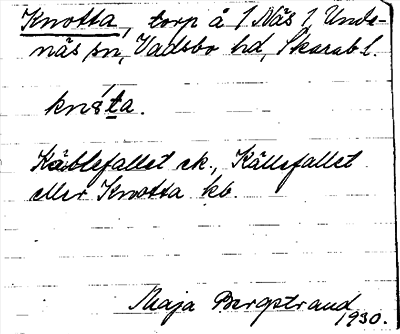 Knotta, torp å 1 Näs 1, Unde-
näs sn, Vadsbo hd, Skarab l.
Källefallet ek., Källefallet
eller Knotta kb.
Maja Bergstrand
1930.